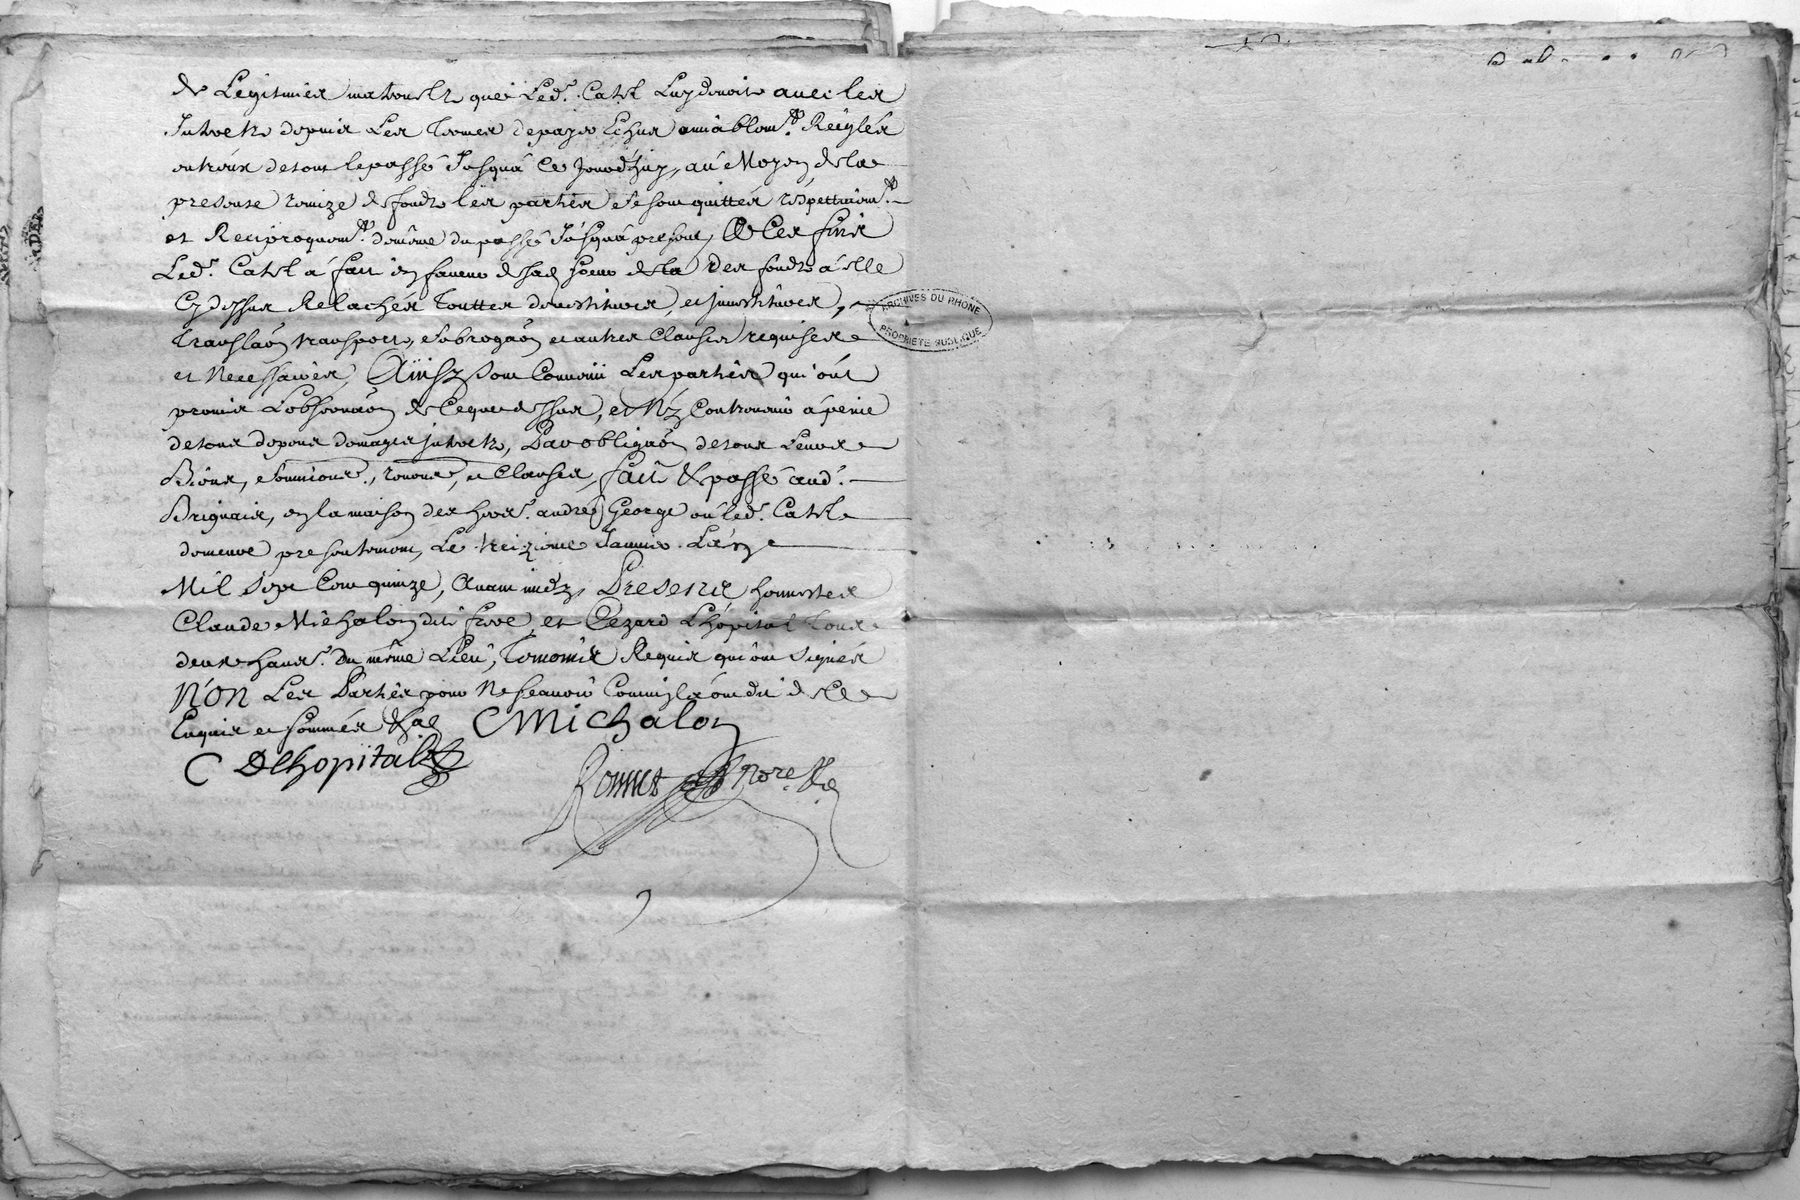 de Legitimes maternelz que Led.t Catel Luy devoit avec les
Interetz depuis Les termes de payes Echus amiablem.t Reiglés
entreux de tout le passé Jusqua Ce Jourd'huy, au Moyen de la
presente remize de fondz les parties se sont quittés respectivem.t
et Reciproquem.t de même du passé Jusqua present, A Ces fins
Led.t Catel a fait en faveur de sad soeur des fondz a elle
Cy dessus Relachés touttes devestitures, et jnvestitures,
translaon transport, subrogaon et autres Clauses requises
et Necessaires, Ainsy sont Convenü Les parties qui ont
promis L'observaon de Ceque dessus, et N'y Contrevenir a peine
de tous depens domages jnteretz, Par obligaon de tous Leurs
Biens, soumions, renons, et Clauses, fait & passé aud.t
Brignais, en la maison des hoirs andré George ou led.t Catel
demeure presentement, Le treizieme Janvier L'an
Mil Sept Cent quinze, Avant midy, Presents honnestes
Claude Michalon dit frere et Cezard L'hôpital tous
deux habs. du même Lieu, temoins Requis qui ont signés
N'ON Les Parties pour Ne scavoir Comm'ils ont dit de Ce
Enquis et sommés
CMichalon
C Delhopital
ARCHIVES DU RHONE
PROPRIETE PUBLIQUE